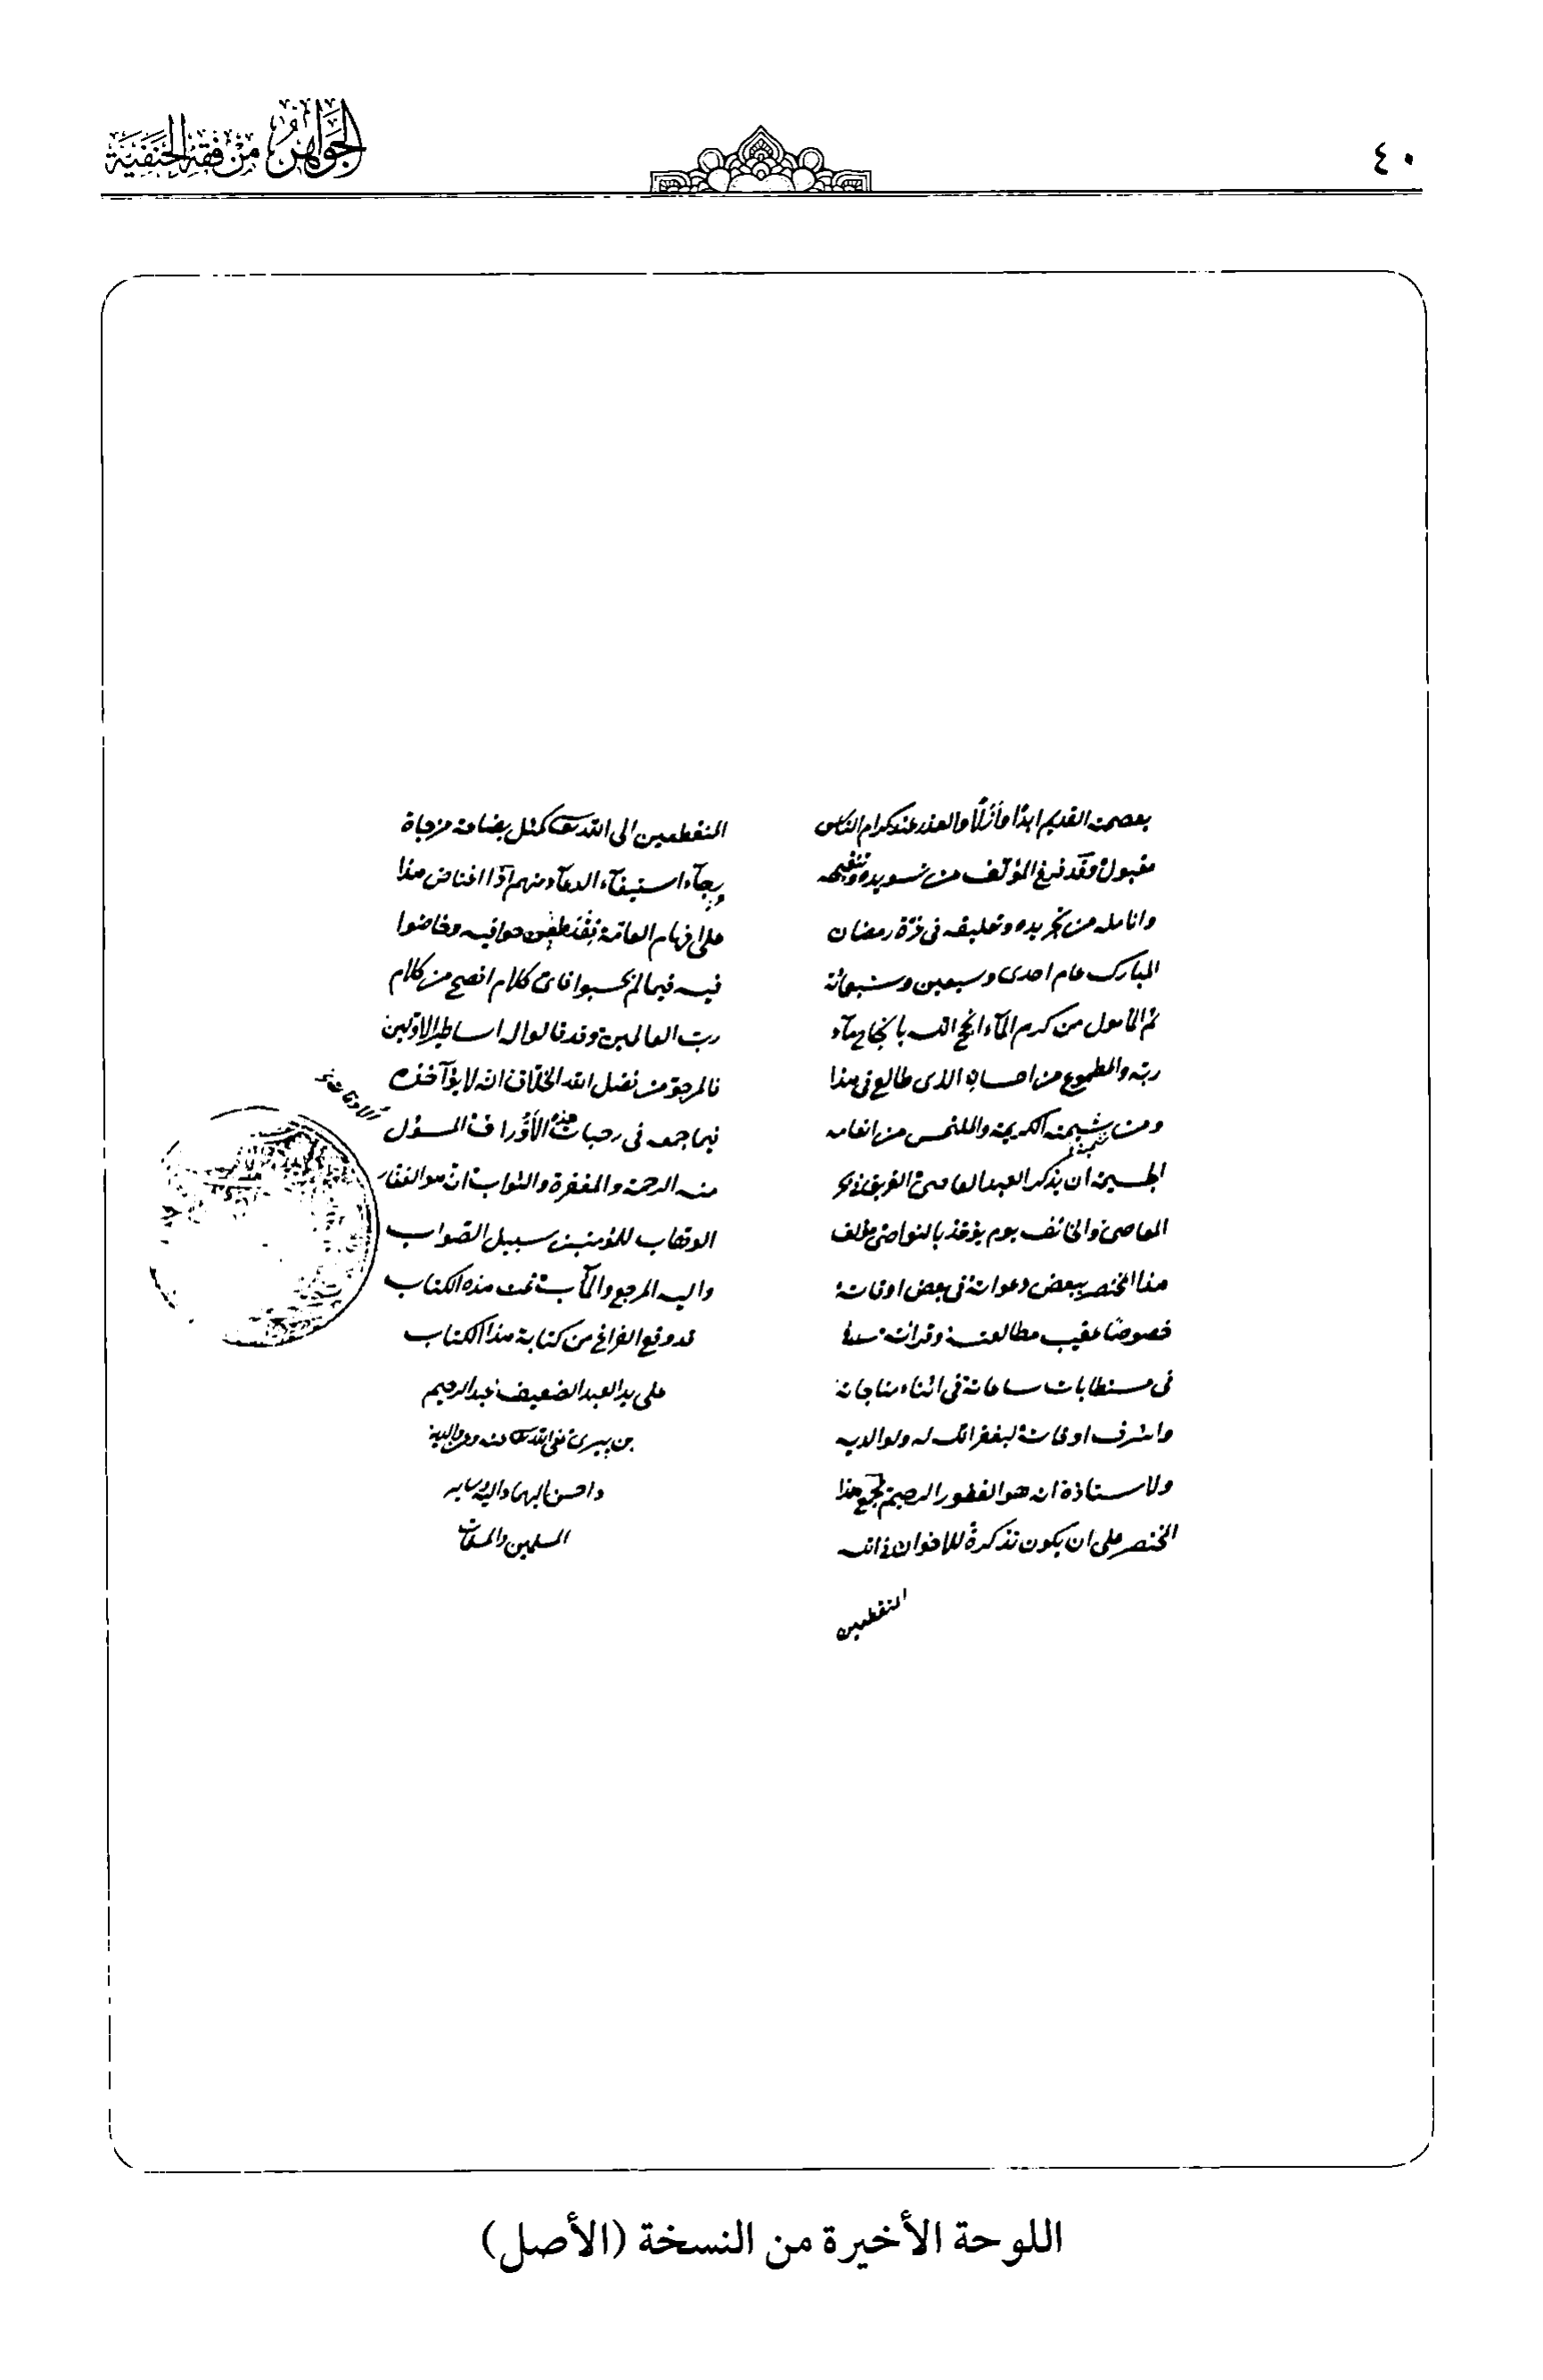 ٤٠
الجواهر من فقه الحنفية
بعصمته القديم ابدًا وأزلًا والعذر عند كرام الناس
مقبول وقد فرغ المؤلف من تسويده وتنقيحه
وانامله من تجريده وتعليقه فى غرة رمضان
المبارك عام احدى وسبعين وسبعمائة
ثم المأمول من كرم
ربه والمطموع من احسان الذى طالع فى هذا
ومن شيمته الكريمة والملتمس من انعامه
ان يذكر العبد العاصى الغريق فى بحر
المعاصى والخائف يوم يؤخذ بالنواصى مؤلف
هذا المختصر ببعض دعواته فى بعض اوقاته
خصوصًا عقيب مطالعته وقرائته
فى مستطابات ساعاته فى اثناء مناجاته
واشرف اوقاته ليغفر الله له ولوالديه
ولاستاذه انه هو الغفور الرحيم هذا
المختصر على ان يكون تذكرة للاخوان
المنقطعين
المنقطعين الى الله كمثل بضاعة مزجاة
رجآء استيفآء الدعآء منهم هذا
على افهام العامة وخاضوا
فيه فيما لم كلام افصح من كلام
رب العالمين وقد قالوا اساطير الاولين
فالمرجو من فضل الله الخلاق ان لا يؤآخذه
فيما جمعه فى هذه الأوراق المسؤل
منه الرحمة والمغفرة والثواب انه هو الغفار
الوهاب للمؤمنين سبيل الصواب
واليه المرجع والمآب تمت هذه الكتاب
قد وقع الفراغ من كتابة هذا الكتاب
على يد العبد الضعيف عبد الرحيم
بن بيرى عفى الله عنه وعن والديه
واحسن اليهما واليه وسائر
المسلمين والمسلمات
اللوحة الأخيرة من النسخة (الأصل)